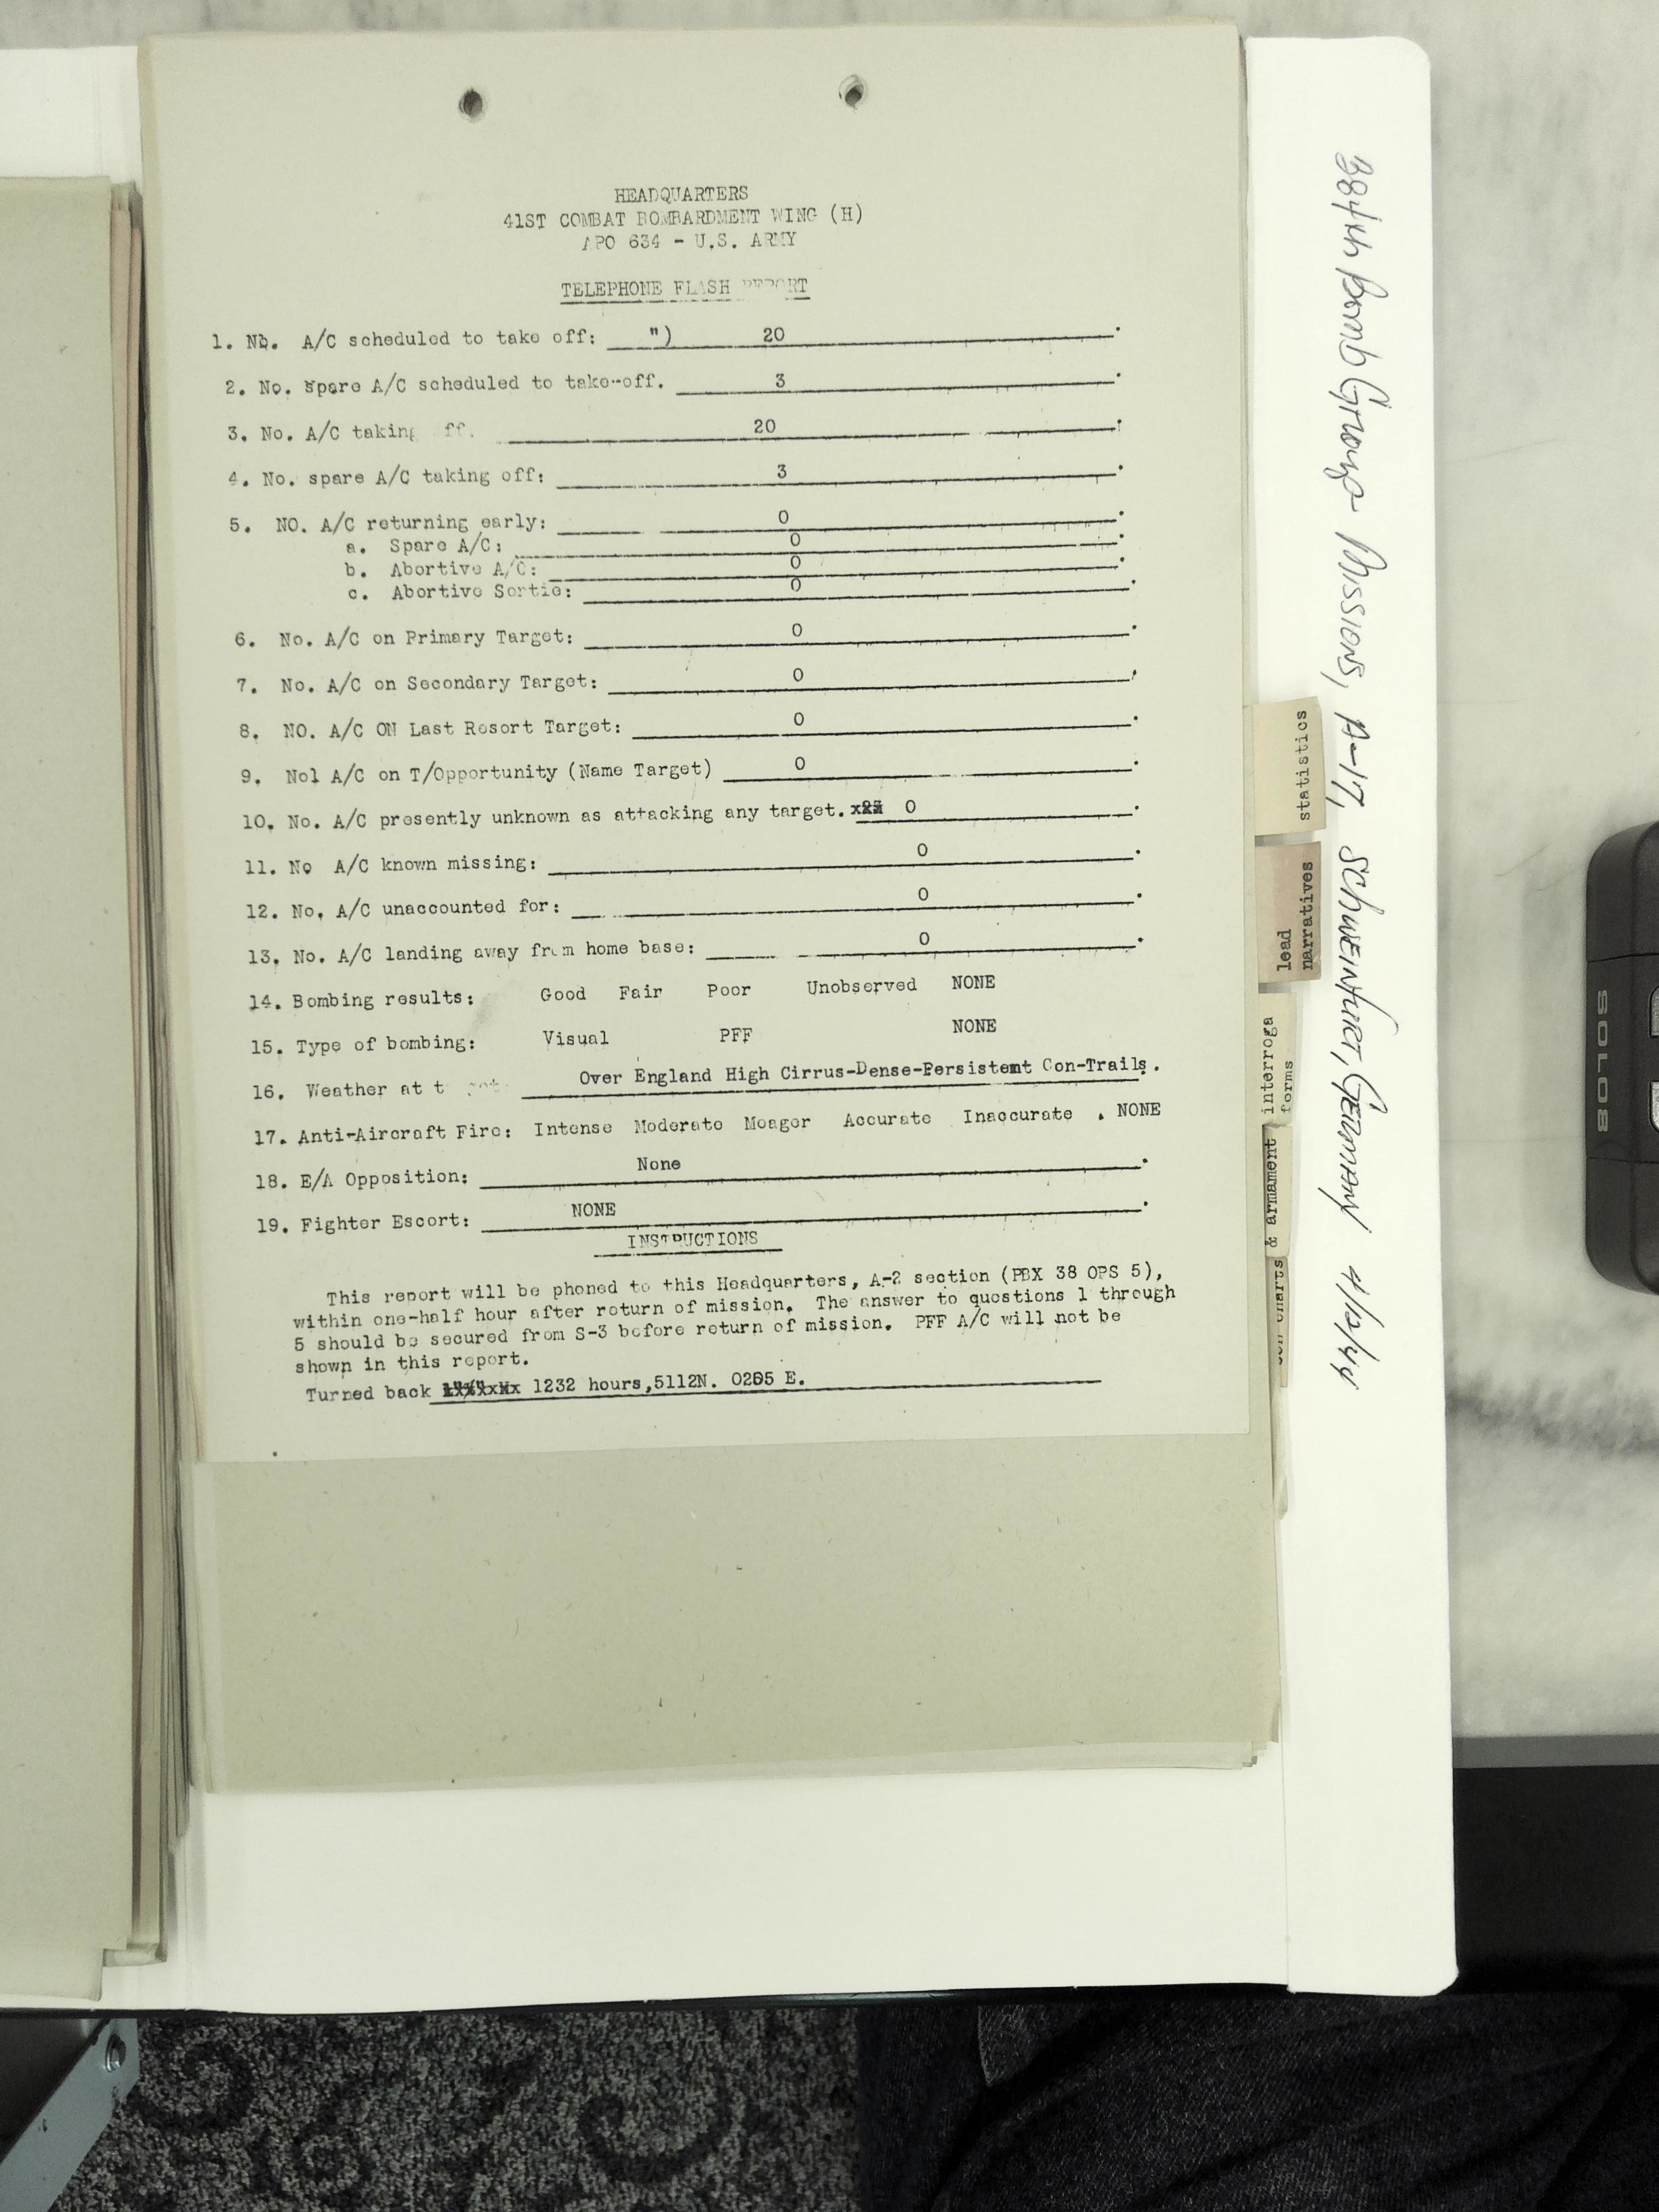 HEADQUARTERS
41ST COMBAT BOMBARDMENT WING (H)
APO 634 - U.S. ARMY
TELEPHONE FLASH REPORT
1. No. A/C scheduled to take off: ") 20.
2. No. spare A/C scheduled to take-off. 3.
3. No. A/C taking ff. 20.
4. No. spare A/C taking off: 3.
5. NO. A/C returning early: 0.
a. Spare A/C: 0.
b. Abortive A/C: 0.
c. Abortive Sortie: 0.
6. No. A/C on Primary Target: 0.
7. No. A/C on Secondary Target: 0.
8. NO. A/C ON Last Resort Target: 0.
9. Nol A/C on T/Opportunity (Name Target) 0.
10. No. A/C presently unknown as attacking any target. 0.
11. No A/C known missing: 0.
12. No. A/C unaccounted for: 0.
13. No. A/C landing away from home base: 0.
14. Bombing results: Good Fair Poor Unobserved NONE
15. Type of bombing: Visual PFF NONE
16. Weather at Over England High Cirrus-Dense-Persistent Con-Trails.
17. Anti-Aircraft Fire: Intense Moderate Meager Accurate Inaccurate . NONE
18. E/A Opposition: None.
19. Fighter Escort: NONE.
INSTRUCTIONS
This report will be phoned to this Headquarters, A-2 section (PBX 38 OPS 5),
within one-half hour after return of mission. The answer to questions 1 through
5 should be secured from S-3 before return of mission. PFF A/C will not be
shown in this report.
Turned back 1232 hours,5112N. E.
statistics
lead
narratives
interroga
forms
& armament
charts
384th Bomb Group Missions, A-17, Schweinfurt, Germany 4/12/44
SOLO8